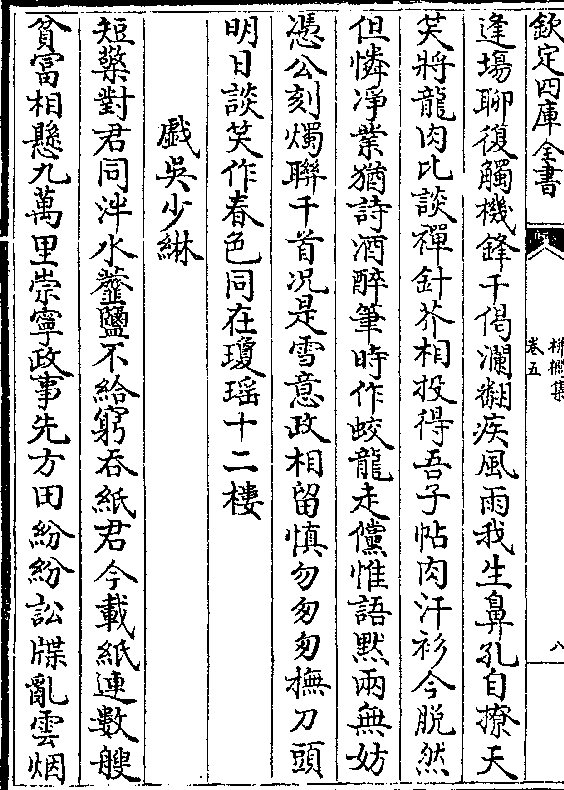 欽定四庫全書
栟櫚集
卷五
八
逢塲聊復觸機鋒千偈瀾翻疾風雨我生鼻孔自撩天
笑將龍肉比談禪針芥相投得吾子帖肉汗衫今脱然
但憐凈業猶詩酒醉筆時作蛟龍走儻惟語黙兩無妨
憑公刻燭聯千首况是雪意政相留慎勿匆匆撫刀頭
明日談笑作春色同在瓊瑶十二樓
戱吳少綝
短檠對君同泮水虀鹽不給窮吞紙君今載紙連數艘
貧富相懸九萬里崇寧政事先方田紛紛訟牒亂雲烟